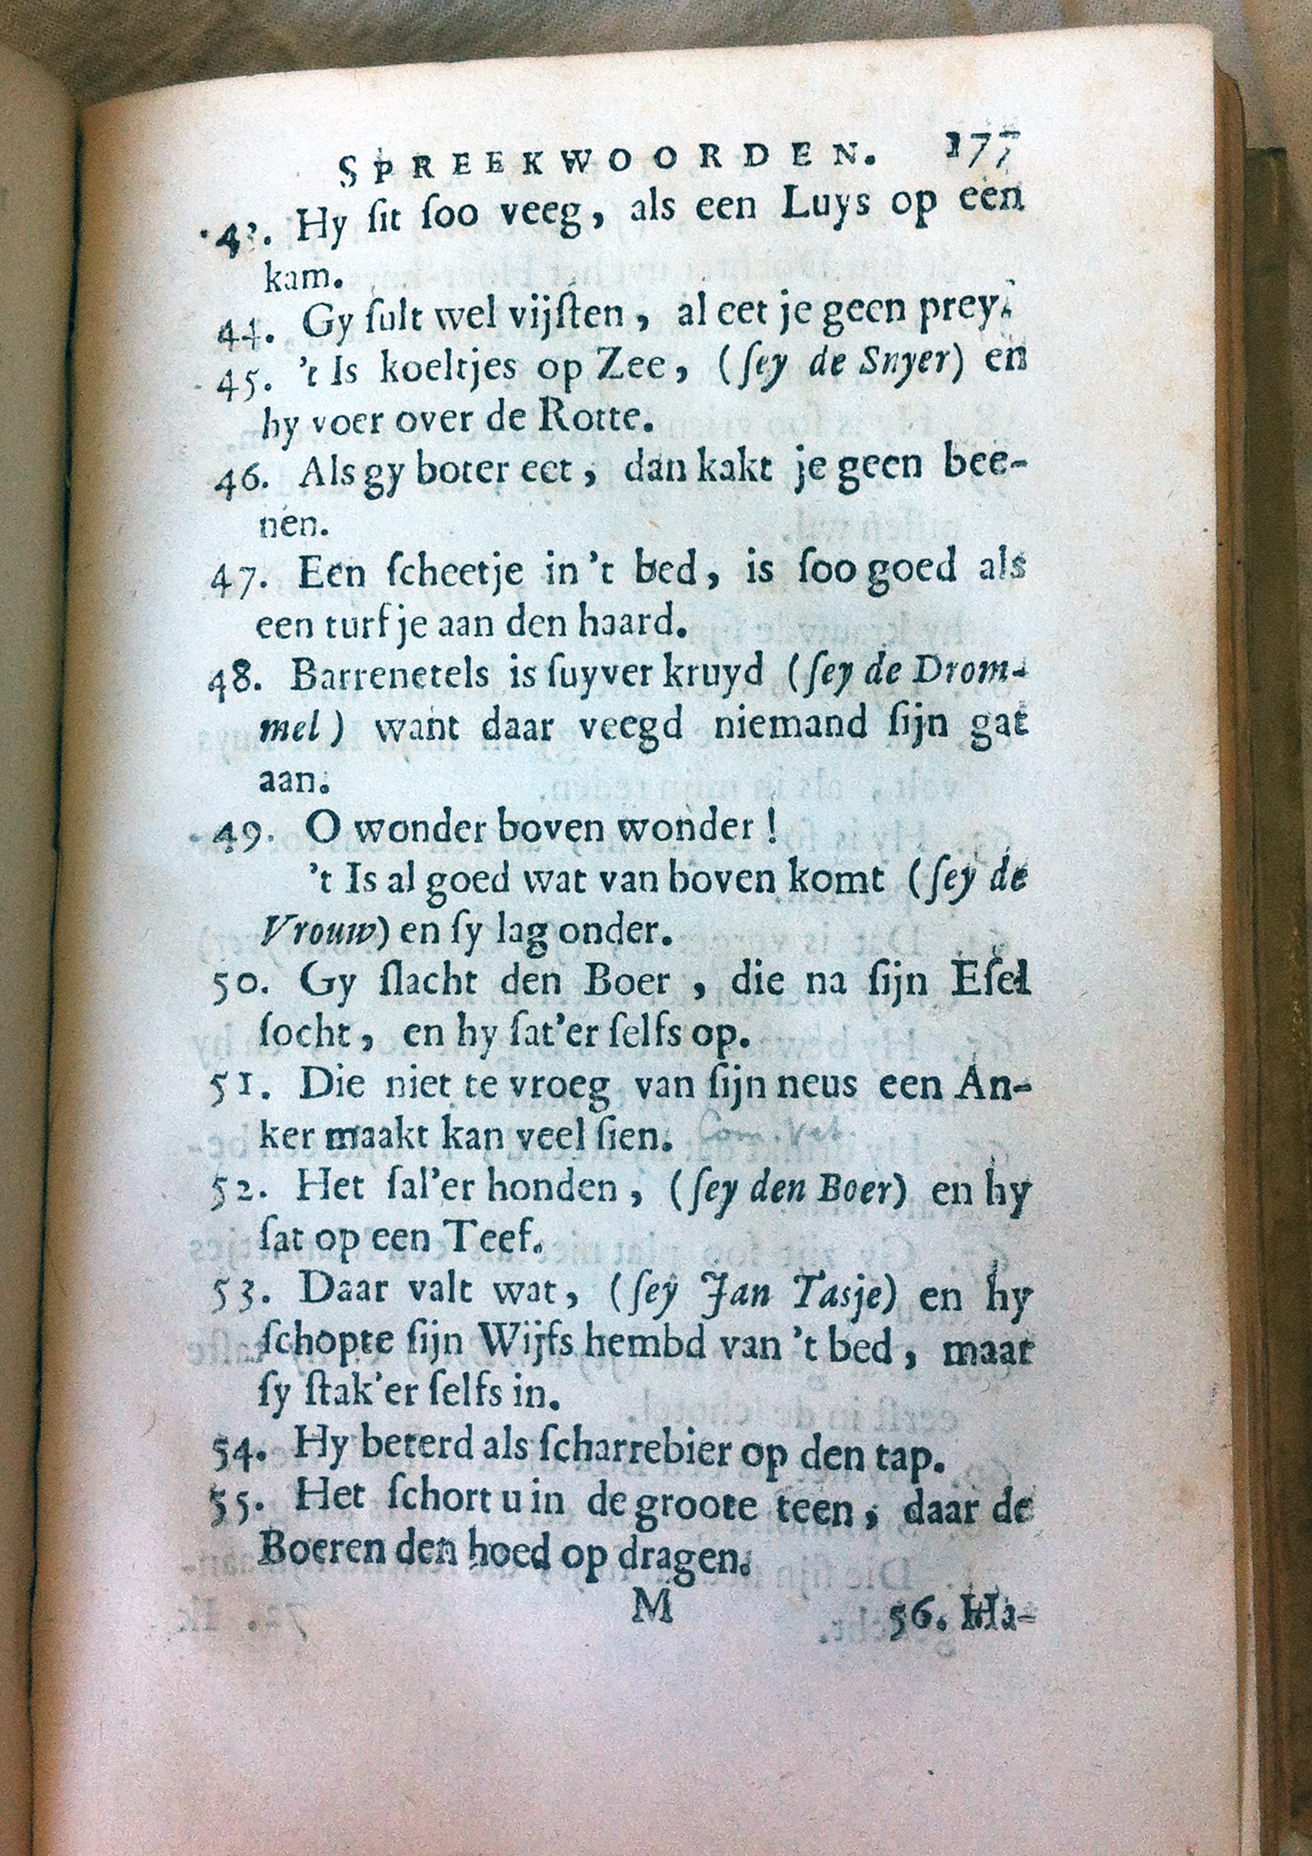 SPREEKWOORDEN. 177
43. Hy ſit ſoo veeg, als een Luys op een
kam.
44. Gy ſult wel vijſten, al eet je geen prey.
45. 't Is koeltjes op Zee, (ſey de Snyer) en
hy voer over de Rotte.
46. Als gy boter eet, dan kakt je geen bee-
nen.
47. Een ſcheetje in 't bed, is ſoo goed als
een turfje aan den haard.
48. Barrenetels is ſuyver kruyd (ſey de Drom-
mel) want daar veegd niemand ſijn gat
aan.
49. O wonder boven wonder!
't Is al goed wat van boven komt (ſey de
Vrouw) en ſy lag onder.
50. Gy ſlacht den Boer, die na ſijn Eſel
ſocht, en hy ſat'er ſelfs op.
51. Die niet te vroeg van ſijn neus een An-
ker maakt kan veel ſien.
52. Het ſal'er honden, (ſey den Boer) en hy
ſat op een Teef.
53. Daar valt wat, (ſey Jan Tasje) en hy
ſchopte ſijn Wijfs hembd van 't bed, maar
ſy ſtak'er ſelfs in.
54. Hy beterd als ſcharrebier op den tap.
55. Het ſchort u in de groote teen, daar de
Boeren den hoed op dragen.
M 56. Ha-